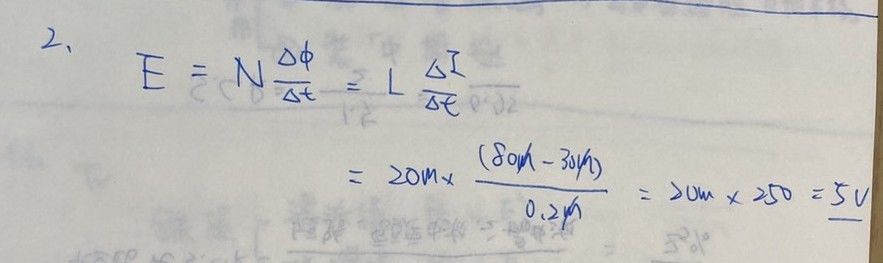 2、
E = N Δφ/Δt = L ΔI/Δt
= 20m × (80m - 30m)/0.2m = 20m × 250 = 5V